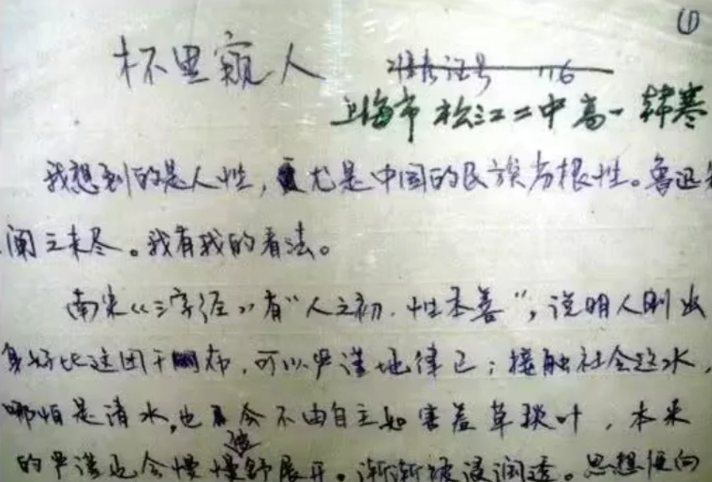 ①
杯里窥人 准考证号 116
上海市松江二中高一 韩寒
我想到的是人性,尤是中国的民族劣根性。鲁迅先
阐之未尽。我有我的看法。
南宋《三字经》有“人之初,性本善”,说明人刚出
身好比这团干布,可以严谨地律己;接触社会这水,
哪怕是清水,也会不由自主如害羞草掞叶,本来
的严谨也会慢慢地舒展开。渐渐被浸润透。思想便向